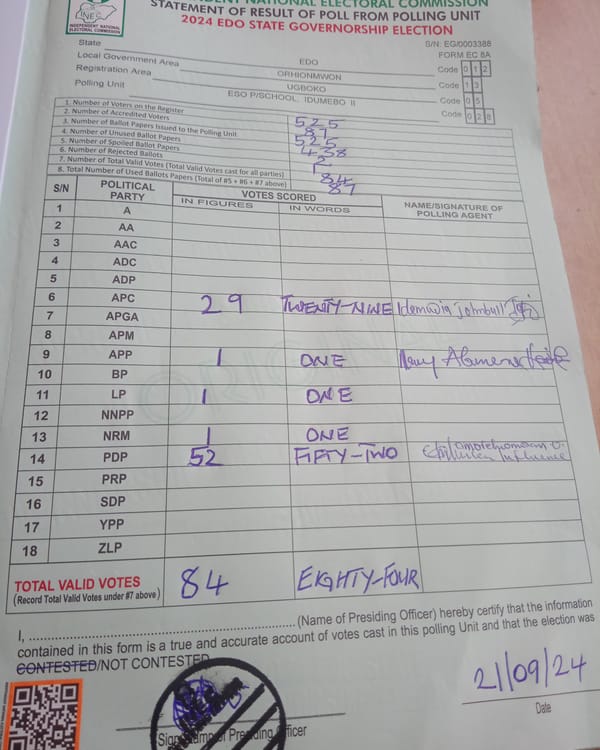 INDEPENDENT NATIONAL ELECTORAL COMMISSION
STATEMENT OF RESULT OF POLL FROM POLLING UNIT
2024 EDO STATE GOVERNORSHIP ELECTION
INEC
INDEPENDENT NATIONAL ELECTORAL COMMISSION
S/N: EG/0003388
FORM EC 8A
State EDO Code 0 1 2
Local Government Area ORHIONMWON Code 1 3
Registration Area UGBOKO Code 0 5
Polling Unit ESO P/SCHOOL, IDUMEBO II Code 0 2 8
1. Number of Voters on the Register 525
2. Number of Accredited Voters 87
3. Number of Ballot Papers Issued to the Polling Unit 525
4. Number of Unused Ballot Papers 438
5. Number of Spoiled Ballot Papers
6. Number of Rejected Ballots 2
7. Number of Total Valid Votes (Total Valid Votes cast for all parties) 84
8. Total Number of Used Ballots Papers (Total of #5 + #6 + #7 above) 87
S/N POLITICAL PARTY VOTES SCORED NAME/SIGNATURE OF POLLING AGENT
IN FIGURES IN WORDS
1 A
2 AA
3 AAC
4 ADC
5 ADP
6 APC 29 TWENTY-NINE Johnbull
7 APGA
8 APM
9 APP 1 ONE
10 BP
11 LP 1 ONE
12 NNPP
13 NRM 1 ONE
14 PDP 52 FIFTY-TWO Influence
15 PRP
16 SDP
17 YPP
18 ZLP
TOTAL VALID VOTES 84 EIGHTY-FOUR
(Record Total Valid Votes under #7 above)
I, (Name of Presiding Officer) hereby certify that the information
contained in this form is a true and accurate account of votes cast in this polling Unit and that the election was
CONTESTED/NOT CONTESTED
21/09/24
Sign Stamp of Presiding Officer
Date
ORIGINAL